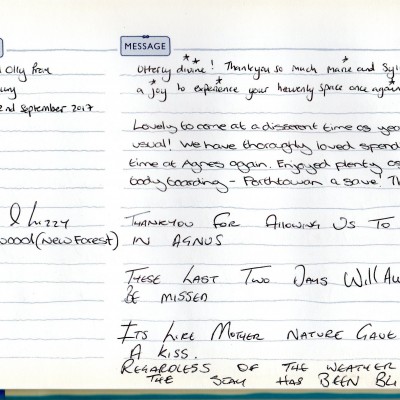 MESSAGE
Olly from
2nd September 2017
Utterly divine! Thankyou so much Marie and
a joy to experience your heavenly space once again
Lovely to come at a different time as
usual! We have thoroughly loved
time at Agnes again. Enjoyed plenty
body boarding - Porthtowan a save.
& Lizzy
(New Forest)
THANKYOU FOR ALLOWING US TO
IN AGNUS
THESE LAST TWO DAYS WILL
BE MISSED
ITS LIKE MOTHER NATURE GAVE
A KISS.
REGARDLESS OF THE WEATHER
THE STAY HAS BEEN